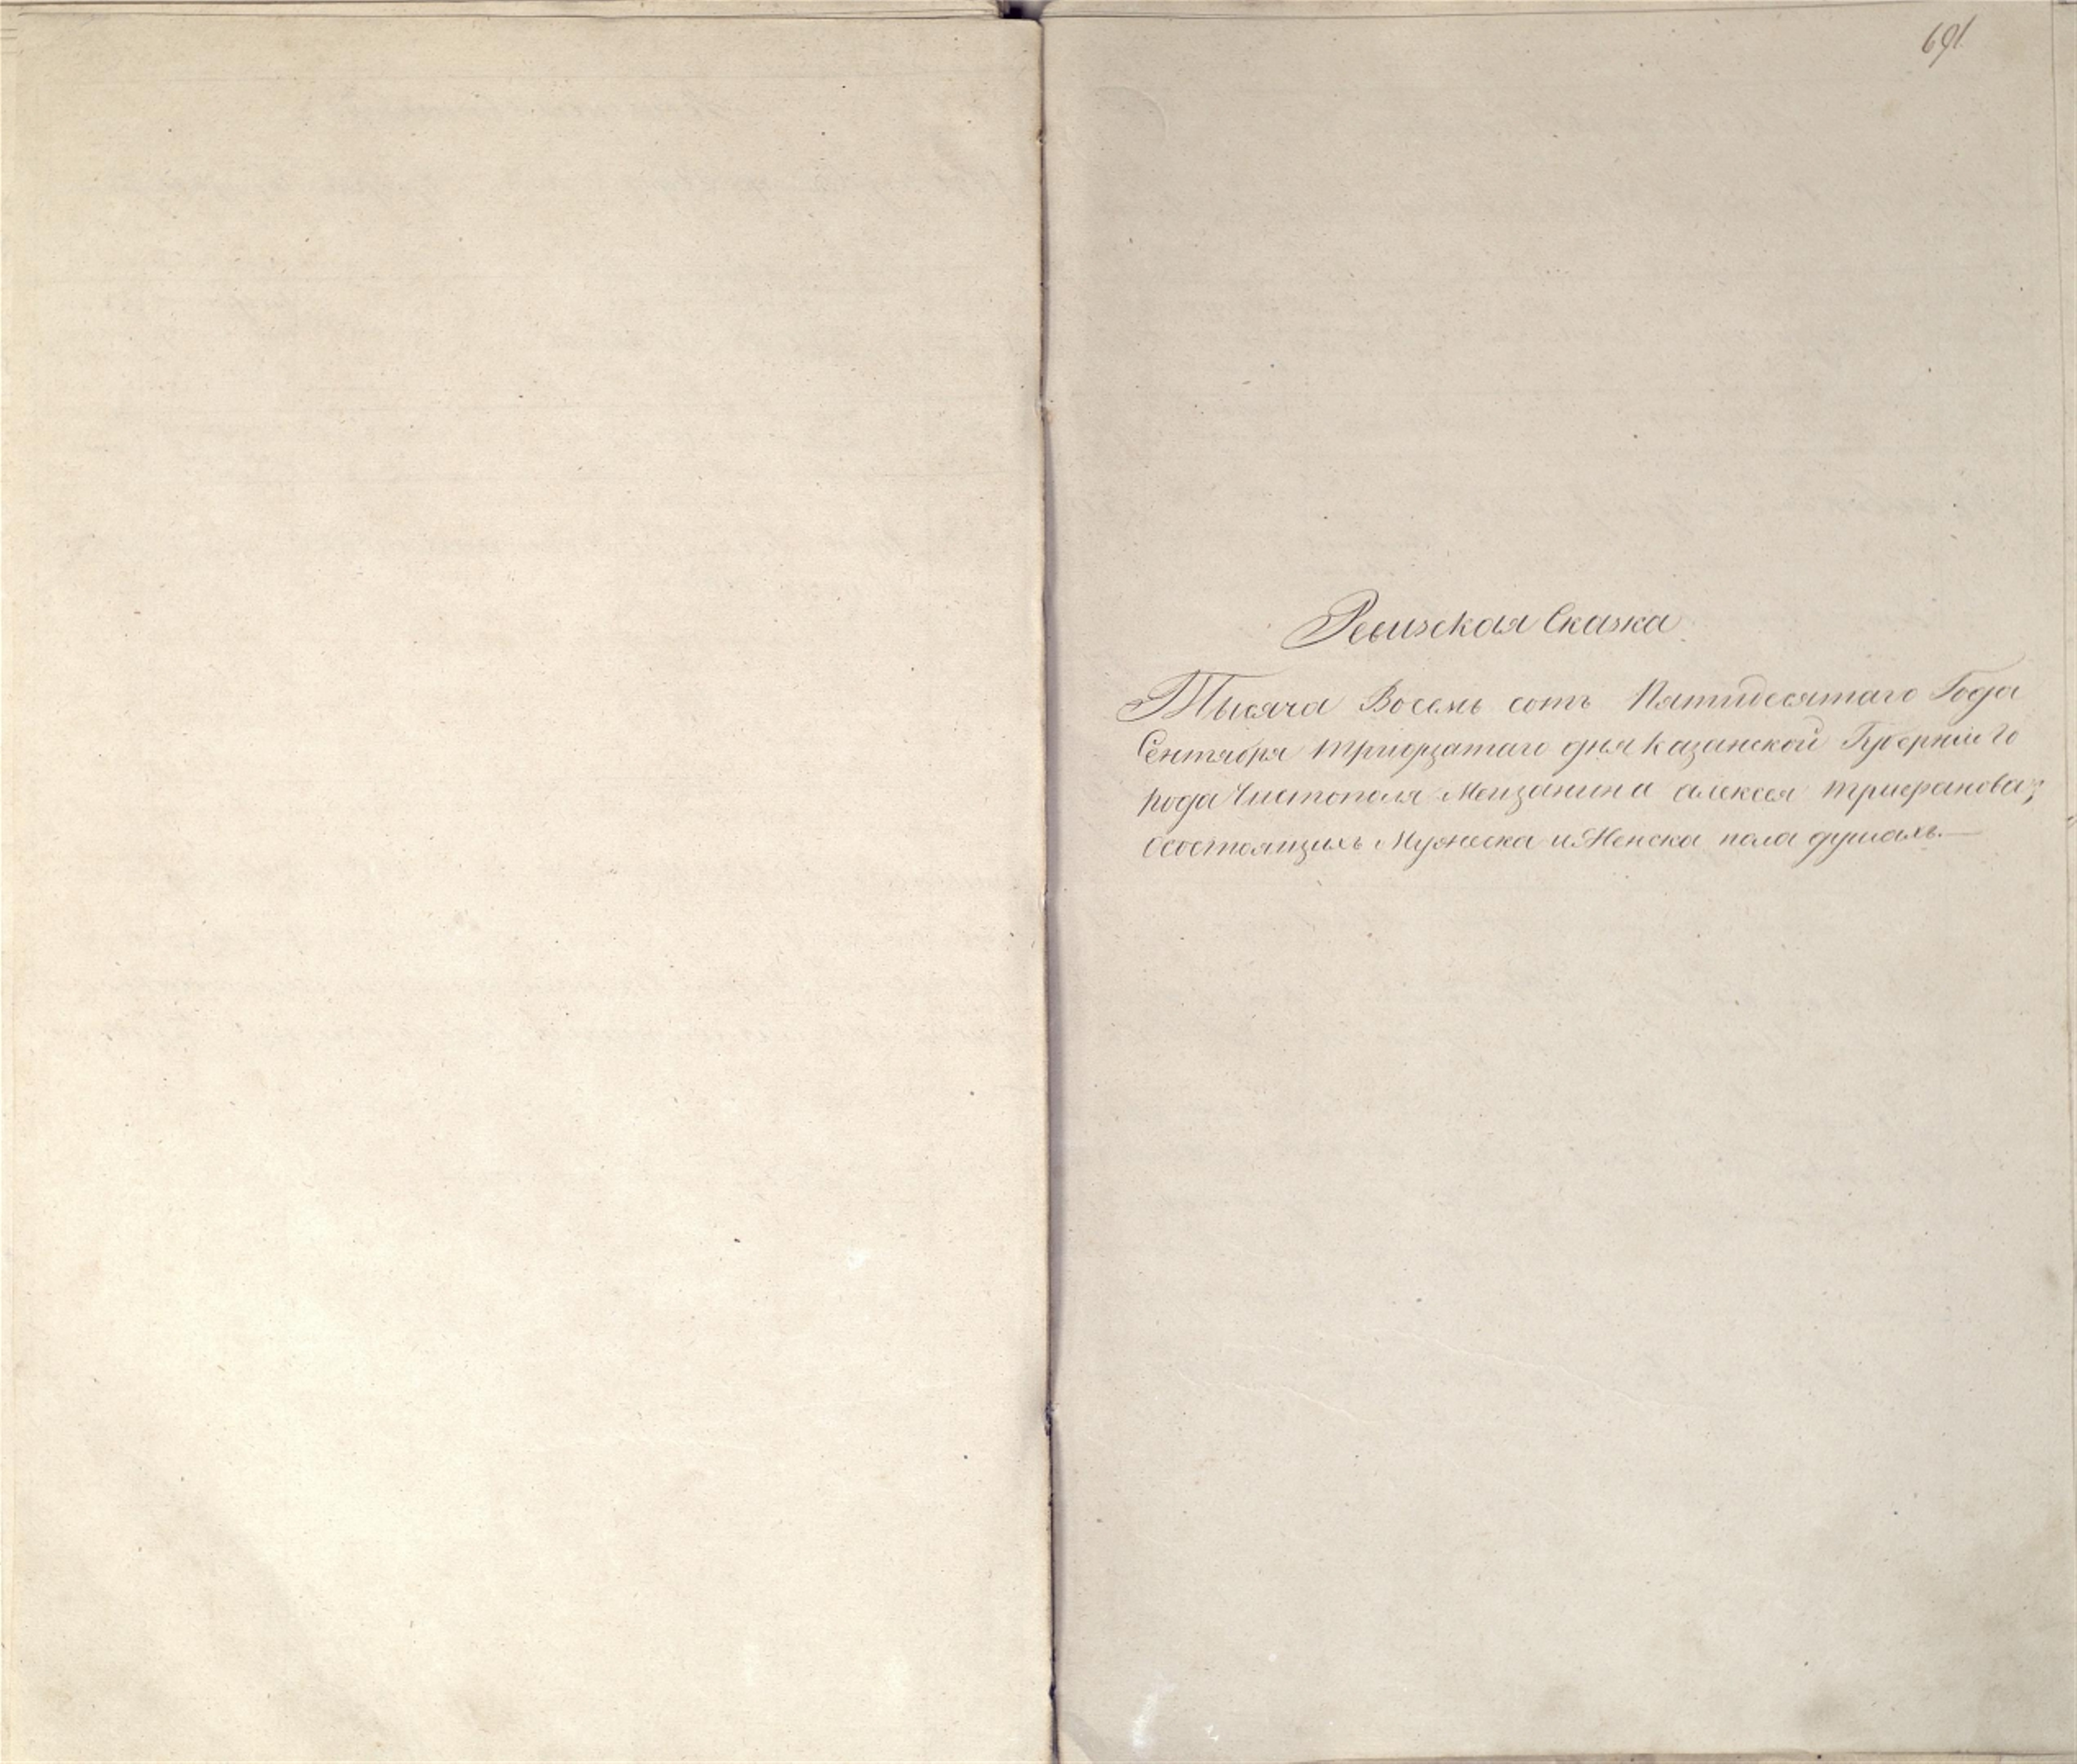 691
Ревизская Сказка
Тысяча Восемь сотъ Пятидесятаго Года
Сентября тридцатаго дня казанской Губерніи Го
рода Чистополя Мещанина алексея трифанова;
осостоящихъ Мужеска и Женска пола душахъ.—